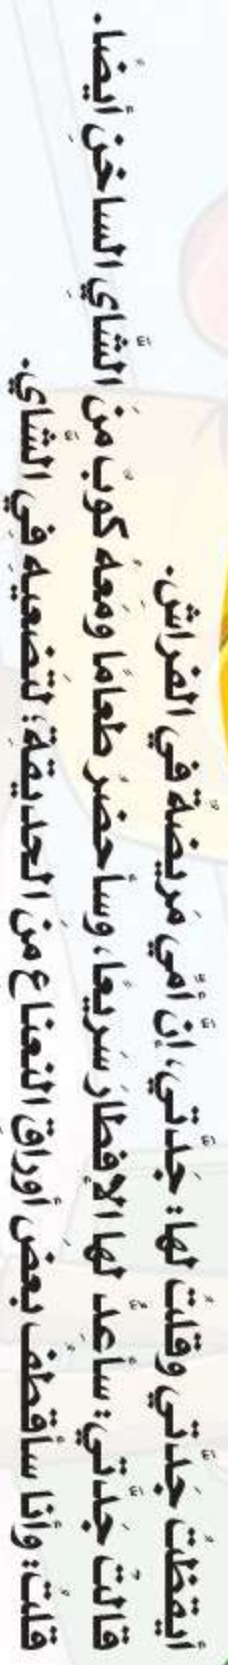 أيقظتُ جَدَّتي وقلتُ لها: جَدَّتي، إنَّ أمِّي مَريضةٌ في الفراشِ.
قالتْ جَدَّتي: سأعِدُّ لها الإفطارَ سَريعًا، وسأحضرُ طعامًا ومَعهُ كوبٌ مِنَ الشَّايِ الساخنِ أيضًا.
قلتُ: وأنا سأقطفُ بعضَ أوراقِ النعناعِ منَ الحديقةِ؛ لتضعيهِ في الشَّاي.